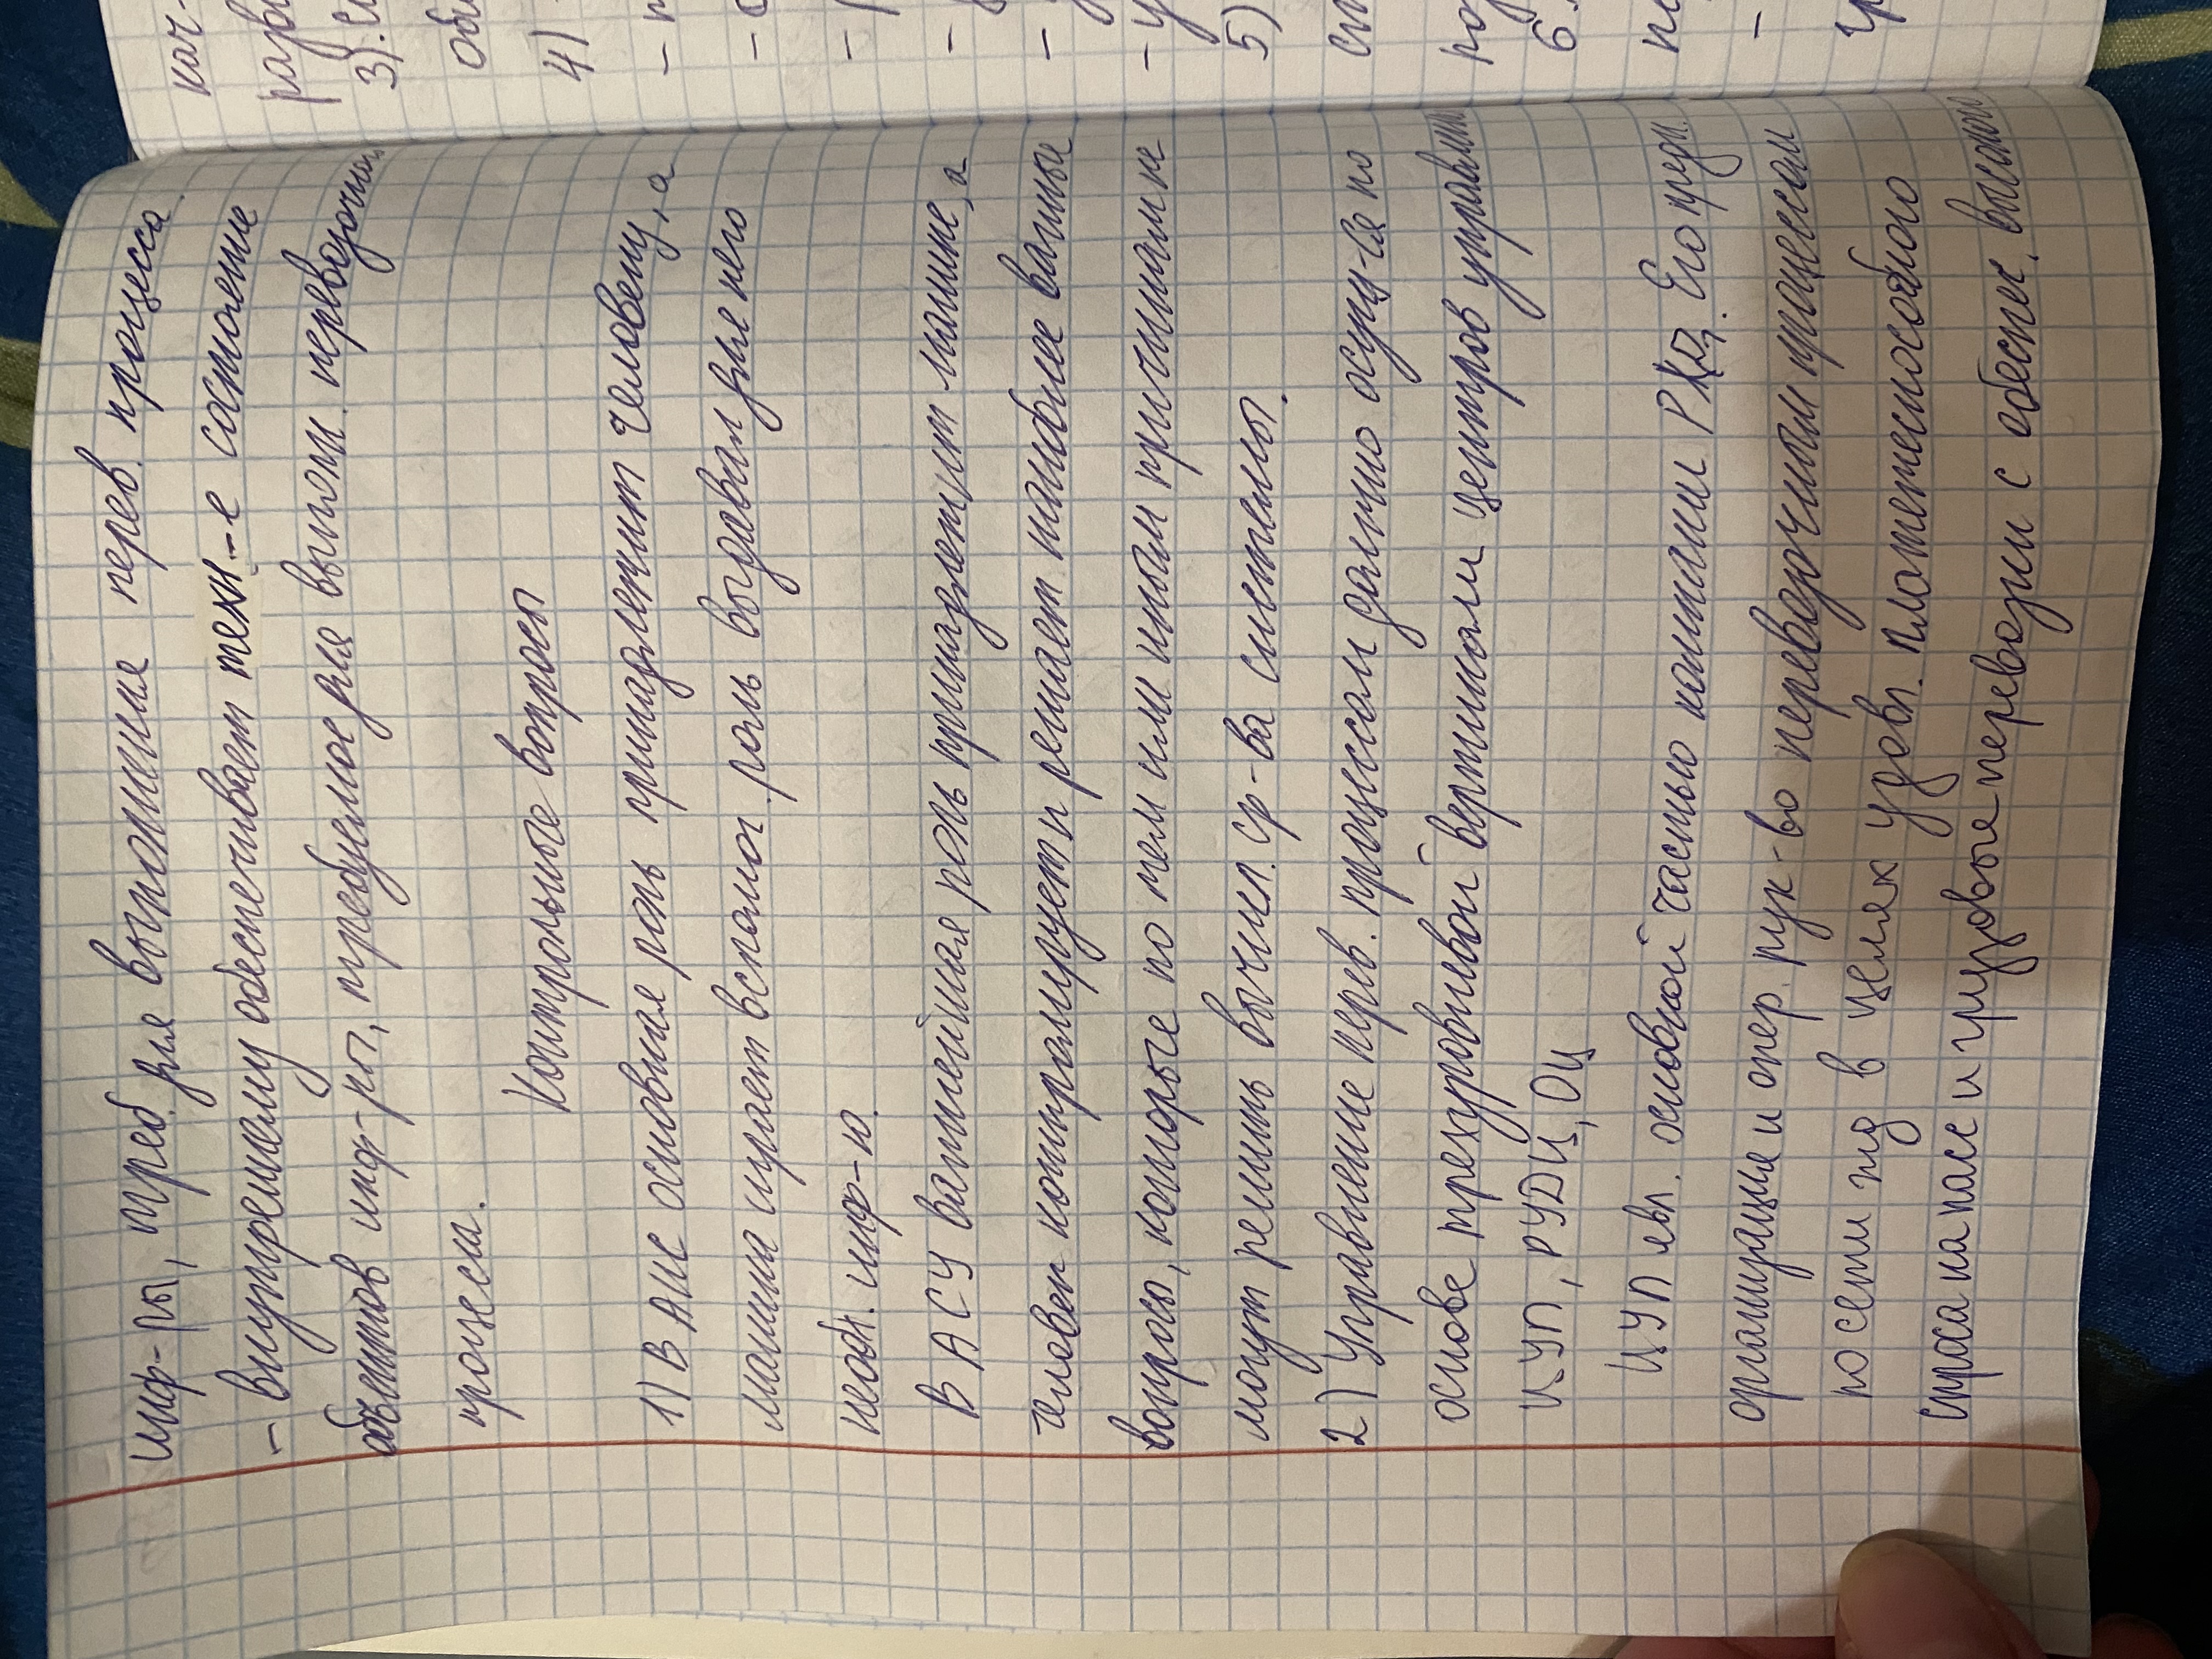 инф-ры, треб. для выполнения перев. процесса.
- внутреннему обеспечивает техн-е состояние
объектов инф-ры, требуемое для выполн. перевозочного
процесса.
Контрольные вопросы
1) В АИС основная роль принадлежит человеку, а
машина играет вспомог. роль выдавая для него
необх. инф-ю.
В АСУ важнейшая роль принадлежит машине, а
человек контролирует и решает наиболее важные
вопросы, которые по тем или иным причинам не
могут решить вычисл. ср-ва системы.
2) Управление перев. процессом должно осущ-ся на
основе трехуровневой вертикали центров управлен.
ЦУП, РУДЦ, ОЦ
ЦУП явл. основной частью компании РЖД. Его предн.
организация и опер. рук-во перевозочным процессом
по сети жд в целях удовл. платежеспособного
спроса на пасс и грузовые перевозки с обеспеч. высокой
кач-
3).
4)
5)
6.